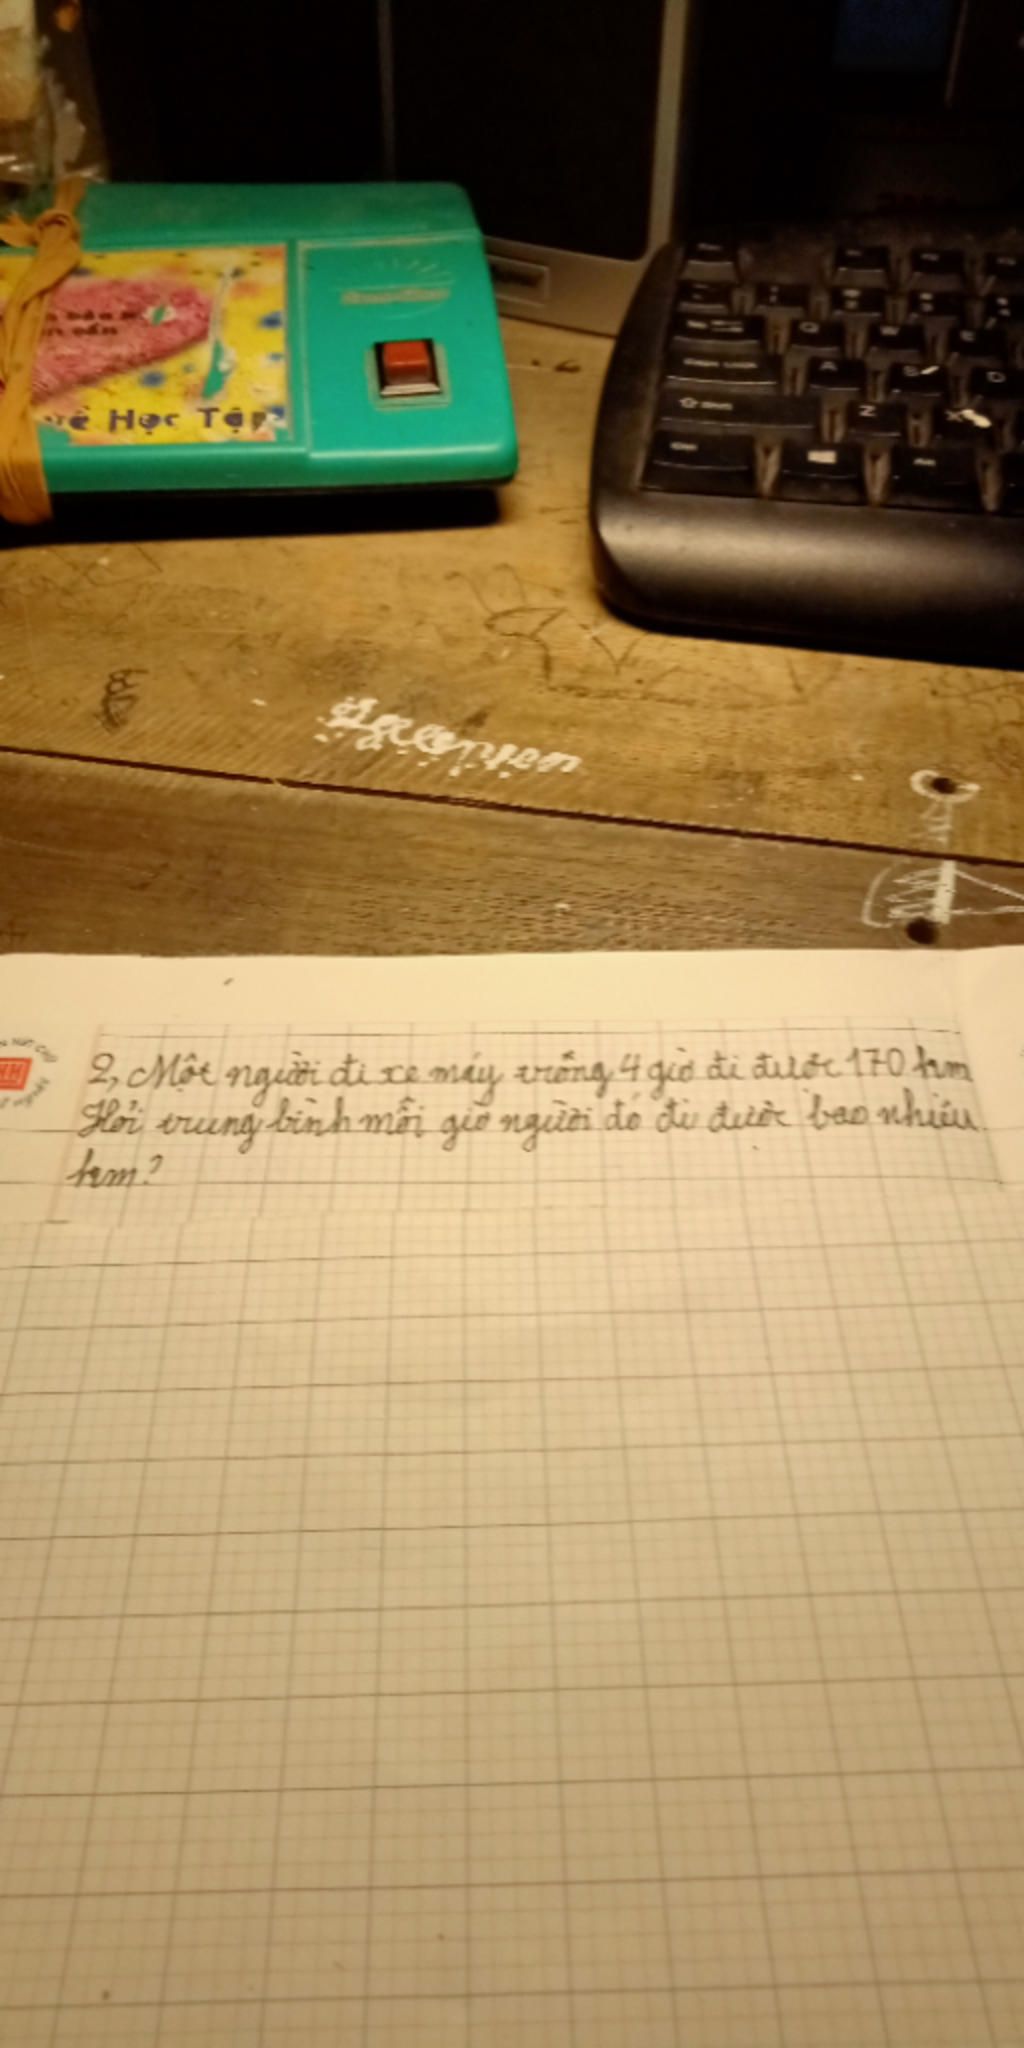 và Học Tập
Q
W
E
A
S
D
Z
X
2, Một người đi xe máy trong 4 giờ đi được 170 km
Hỏi trung bình mỗi giờ người đó đi được bao nhiêu
km?